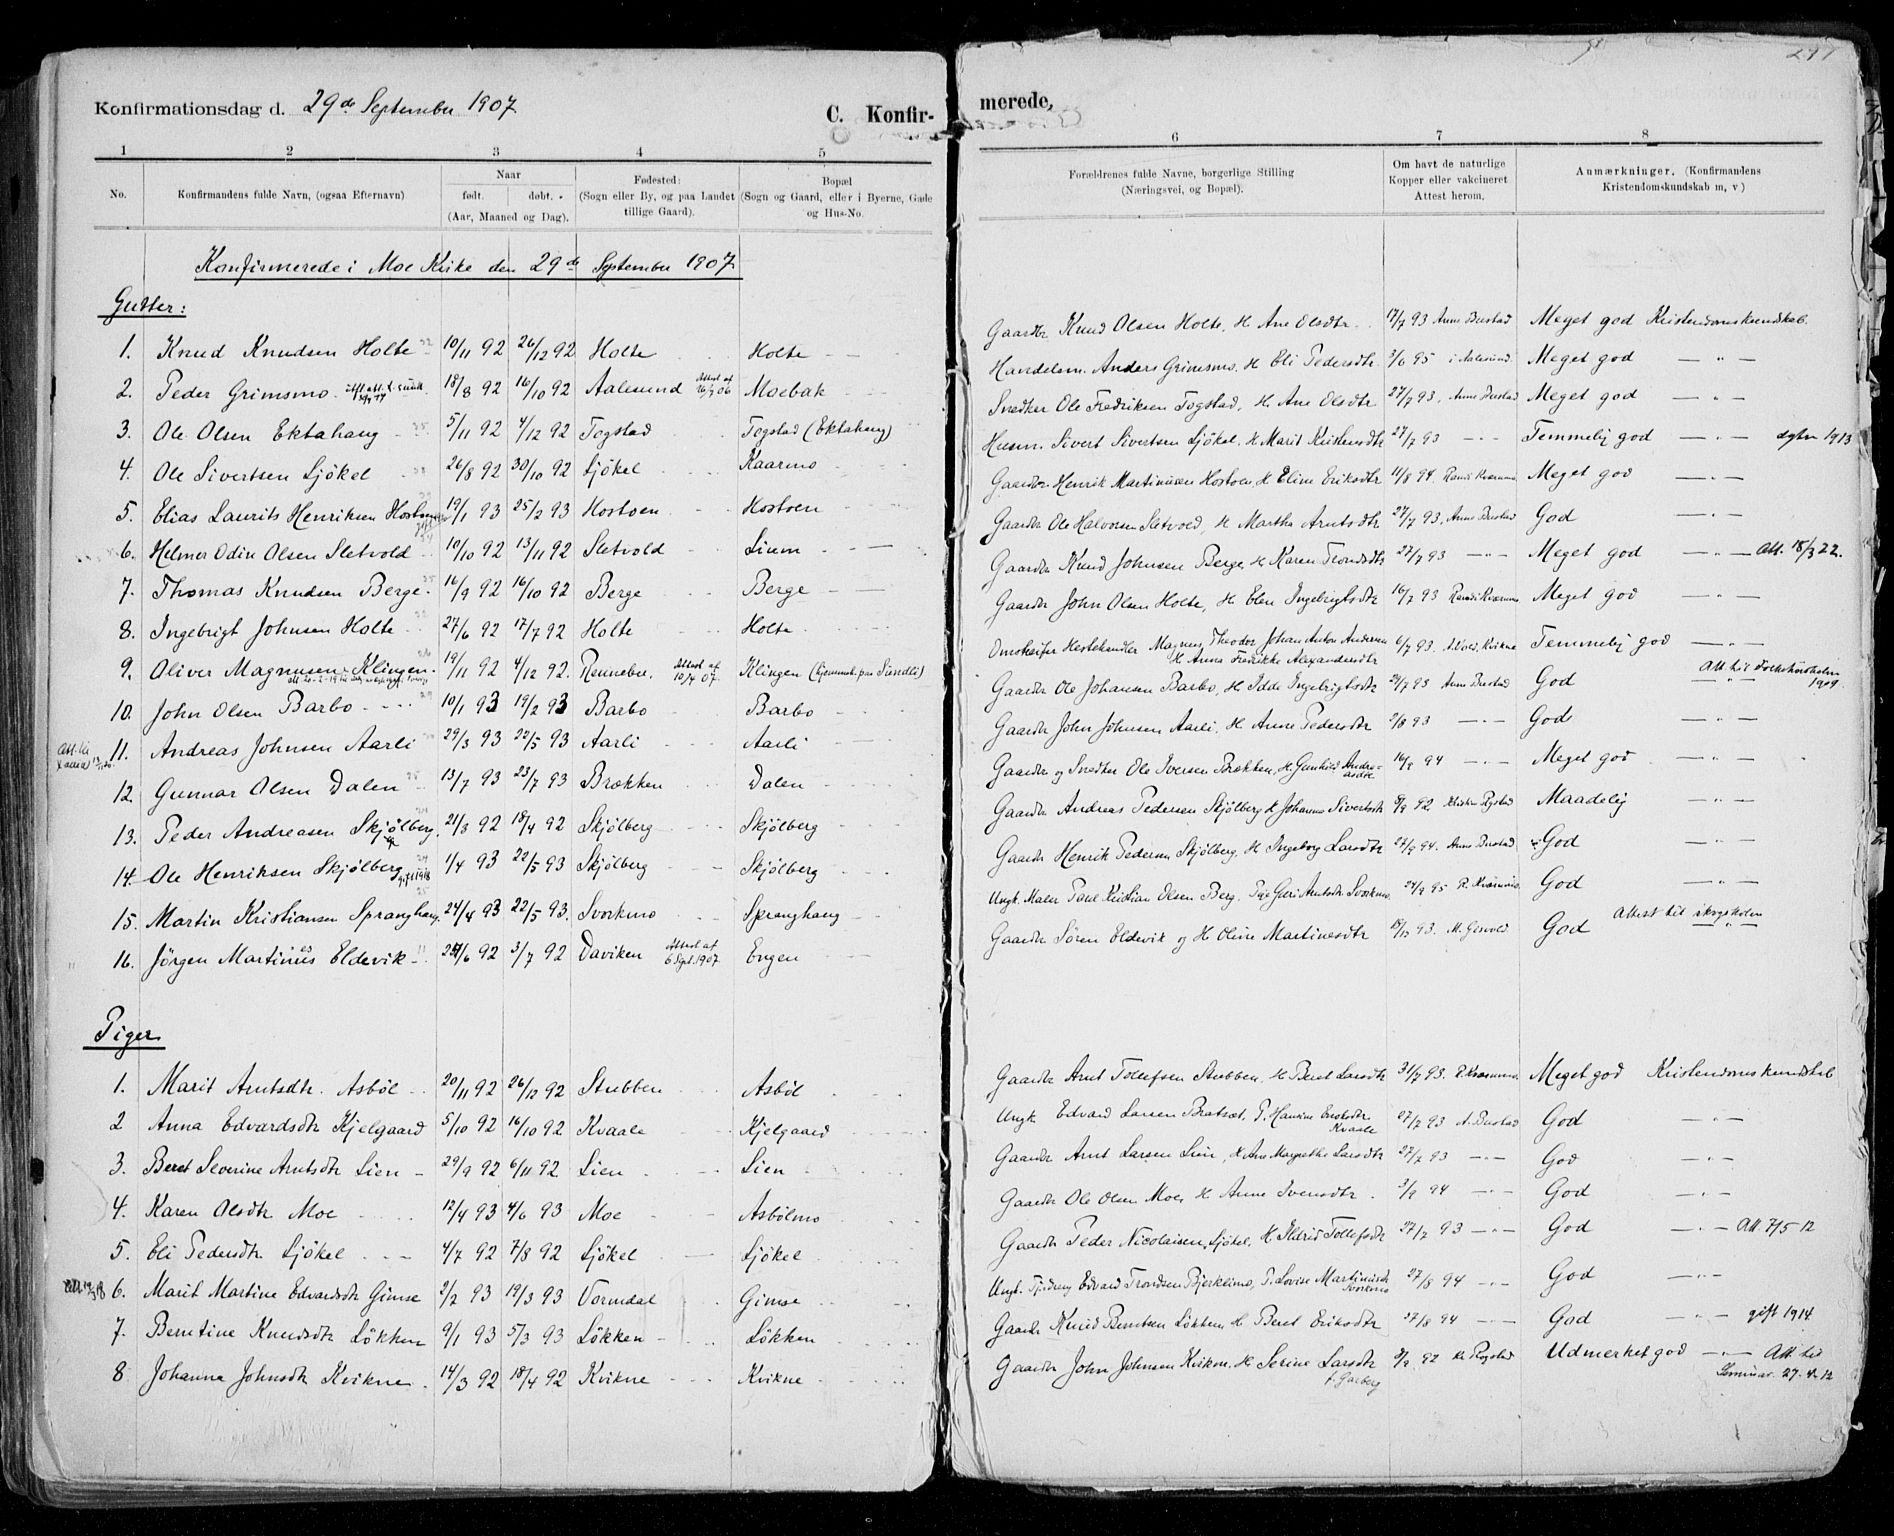 Konfirmationsdag d. 29de September 1907
C. Konfir-
merede,
1 2 3 4 5
6 7 8
No. Konfirmandens fulde Navn, (ogsaa Efternavn) Naar født. døbt. (Aar, Maaned og Dag). Fødested: (Sogn eller By, og paa Landet tillige Gaard). Bopæl (Sogn og Gaard, eller i Byerne, Gade og Hus-No.
Forældrenes fulde Navne, borgerlige Stilling (Næringsvei, og Bopæl). Om havt de naturlige Kopper eller vakcineret Attest herom. Anmærkninger. (Konfirmandens Kristendomskundskab m, v)
Konfirmerede i Moe Kirke den 29de September 1907
Gutter:
1. Knud Knudsen Holte 10/11 92 26/12 92 Holte Holte Gaardbr Knud Olsen Holte, H. Ane Olsdtr. 17/7 93 Anne Bustad Meget god Kristendomskundskab.
2. Peder Grimsmo 18/8 92 16/10 92 Aalesund Attest af 16/9 06 Moebak Handelsm. Anders Grimsmo, H. Eli Pedersdtr 3/6 95 i Aalesund Meget god — " —
3. Ole Olsen Ektahaug 5/11 92 4/12 92 Togstad Togstad (Ektahaug) Snedker Ole Fredriksen Togstad, H. Ane Olsdtr 27/7 93, Anne Bustad Meget god — " —
4. Ole Sivertsen Ljøkel 26/8 92 30/10 92 Ljøkel Kaarmo Husm. Sivert Sivertsen Ljøkel, H. Marit Kristensdtr 27/7 93 — " — Temmelig god — " — 1913
5. Elias Laurits Henriksen Hostoen 19/1 93 25/2 93 Hostoen Hostoen Gaardbr Henrik Martinusen Hostoen, H. Eline Eriksdtr 11/8 94. Meget god — " —
6. Helmer Odin Olsen Sletvold 10/10 92 13/11 92 Sletvold Lium Gaardbr Ole Halvorsen Sletvold, H. Martha Arntsdtr 27/7 93. Anne Bustad God — " —
7. Thomas Knudsen Berge 16/9 92 16/10 92 Berge Berge Gaardbr Knud Johnsen Berge, H Karen Trondsdtr 27/7 93 — " — Meget god — " — Att. 18/3 22.
8. Ingebrigt Johnsen Holte 27/6 92 17/7 92 Holte Holte Gaardbr John Olsen Holte, H. Elen Ingebrigtsdtr 16/7 93 Meget god — " —
9. Oliver Magnusen Klingen 19/11 92 4/12 92. Rennebu. Attest af 10/4 07. Klingen Hestehandler Magnus Theodor Johan Anton Andersen H Anna Fredrikke Alexandersdtr 6/7 93. Temmelig god — " —
10. John Olsen Barbo 10/1 93 19/2 93 Barbo Barbo Gaardbr Ole Johansen Barbo, H. Idde Ingebrigtsdtr 27/7 93 Anne Bustad God Att. til Folkehøiskolen 1909.
11. Andreas Johnsen Aarli 29/3 93 22/5 93 Aarli Aarli Gaardbr John Johnsen Aarli. H. Anne Pedersdtr 2/8 93 — " — God — " —
12. Gunnar Olsen Dalen 13/7 93 23/7 93 Brækken Dalen Gaardbr og Snedker Ole Iversen Brækken, H. Gunhild Andreasdtr 16/8 94 — " — Meget god — " —
13. Peder Andreasen Skjølberg 21/3 92 18/4 92 Skjølberg Skjølberg Gaardbr Andreas Pedersen Skjølberg H Johanna Sivertsdtr 8/9 92 Maadelig — " —
14. Ole Henriksen Skjølberg gift 1918 1/4 93 22/5 93 Skjølberg Skjølberg Gaardbr Henrik Pedersen Skjølberg, H. Ingeborg Larsdtr 27/8 94. Anne Bustad God — " —
15. Martin Kristiansen Spranghaug 24/4 93 22/5 93. Svorkmo Spranghaug Ungk. Maler Paul Kristian Olsen Berg, Pige Guri Arntsdtr Svorkmo. 24/9 95 God — " —
16. Jørgen Martinus Eldevik 24/6 92 3/7 92 Daviken Attest af 6 Sept. 1907. Engen Gaardbr Søren Eldevik og H Oline Martinesdtr 18/12 93. God Attest til skogskolen
Piger
1. Marit Arntsdtr. Asbøl 20/11 92 26/12 92 Stubben Asbøl Gaardbr Arnt Tollefsen Stubben, H Beret Larsdtr 31/7 93. Meget god Kristendomskundskab
2 Anna Edvardsdtr Kjelgaard 5/10 92 16/10 92 Kvaale Kjelgaard Ungk Edvard Larsen Bratset, P. Hansine Eriksdtr Kvaale 27/7 93 A. Bustad God — " —
3. Beret Severine Arntsdtr Lien 29/9 92 6/11 92 Lien Lien Gaardbr Arnt Larsen Lien, H. Ane Margrethe Larsdtr 27/7 93 — " — God — " —
4. Karen Olsdtr Moe 12/4 93 4/6 93 Moe Asbølmo Gaardbr Ole Olsen Moe, H. Anne Iversdtr. 3/9 94 — " — God — " —
5. Eli Pedersdtr Ljøkel 4/7 92 7/8 92 Ljøkel Ljøkel Gaardbr Peder Nicolaisen Ljøkel, H. Ildrid Tollefsdtr 27/7 93 — " — God — " — Att. 7/5 12
6. Marit Martine Edvardsdtr Gimse 2/2 93 19/3 93 Vormdal Gimse Ungk. Tjdreng Edvard Trondsen Bjerklimo, P. Lovise Martinusdtr Svorkmo 27/8 94 — " — God — " —
7. Berntine Knudsdtr Løkken 9/1 93 5/3 93 Løkken Løkken Gaardbr Knud Berntsen Løkken H Beret Eriksdtr 27/8 94 — " — God — " — gift 1914
8 Johanna Johnsdtr Kvikne 14/3 92 18/4 92 Kvikne Kvikne Gaardbr John Johnsen Kvikne, H. Serine Larsdtr f. Garberg 8/9 92 Udmerket god — " — Att til Seminar. 27-4-12